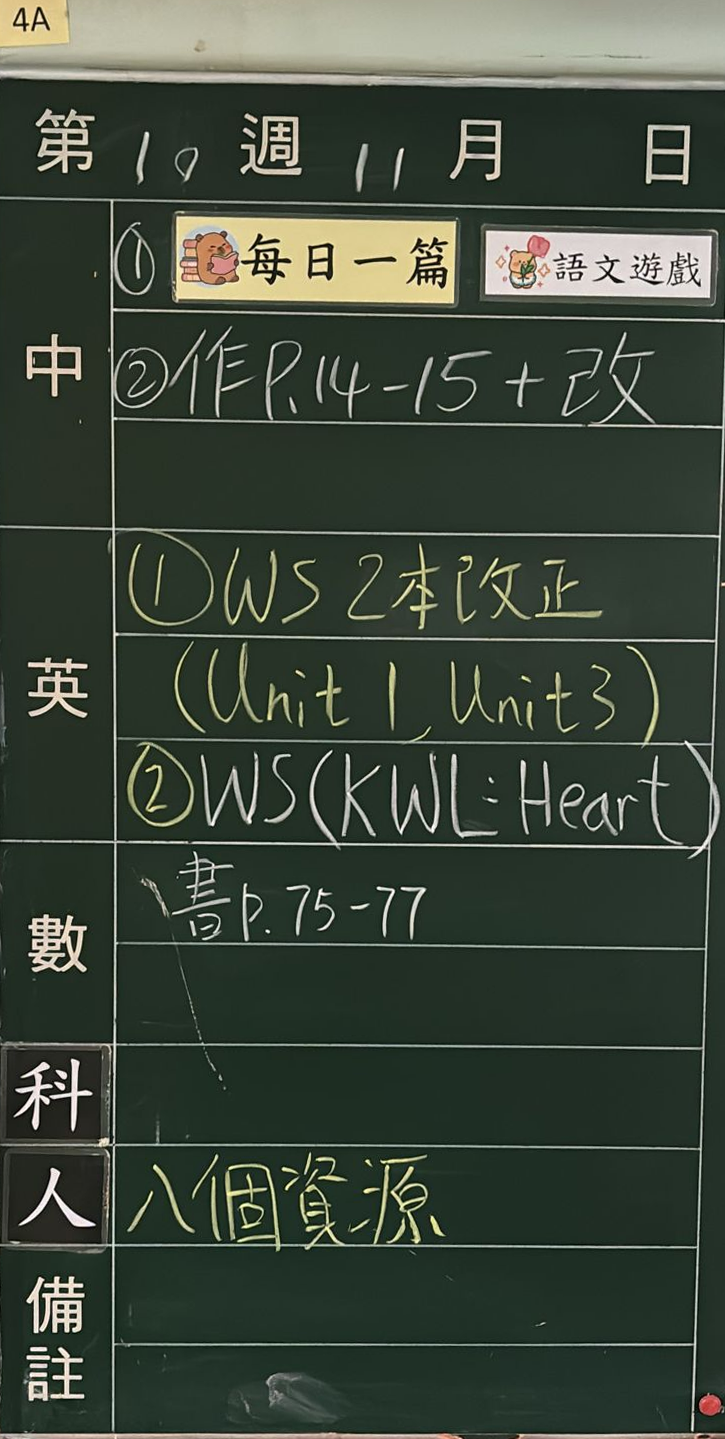 4A
第 10 週 11 月 日
中
① 每日一篇 語文遊戲
② 作P.14-15 + 改
英
① WS 2本改正
(Unit 1, Unit 3)
② WS (KWL: Heart)
數
書p.75-77
科
人 八個資源
備註